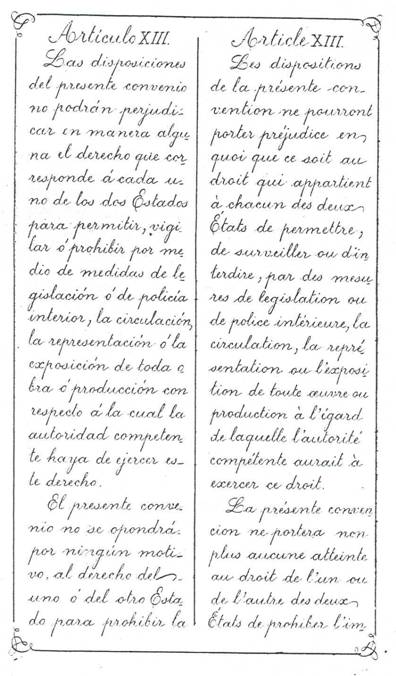 Artículo XIII.
Las disposiciones
del presente convenio
no podrán perjudi-
car en manera algu-
na el derecho que cor-
responde á cada u-
no de los dos Estados
para permitir, vigi-
lar ó prohibir por me-
dio de medidas de le-
gislación ó de policía
interior, la circulación,
la representación ó la
exposición de toda o-
bra ó producción con
respecto á la cual la
autoridad competen-
te haya de ejercer es-
te derecho.
El presente conve-
nio no se opondrá
por ningún moti-
vo, al derecho del
uno ó del otro Esta-
do para prohibir la
Article XIII.
Les dispositions
de la présente con-
vention ne pourront
porter préjudice en
quoi que ce soit au
droit qui appartient
à chacun des deux
États de permettre,
de surveiller ou d'in-
terdire, par des mesu-
res de legislation ou
de police intérieure, la
circulation, la repré-
sentation ou l'exposi-
tion de toute œuvre ou
production à l'égard
de laquelle l'autorité
compétente aurait à
exercer ce droit.
La présente conven-
cion ne portera non
plus aucune atteinte
au droit de l'un ou
de l'autre des deux
États de prohiber l'im-